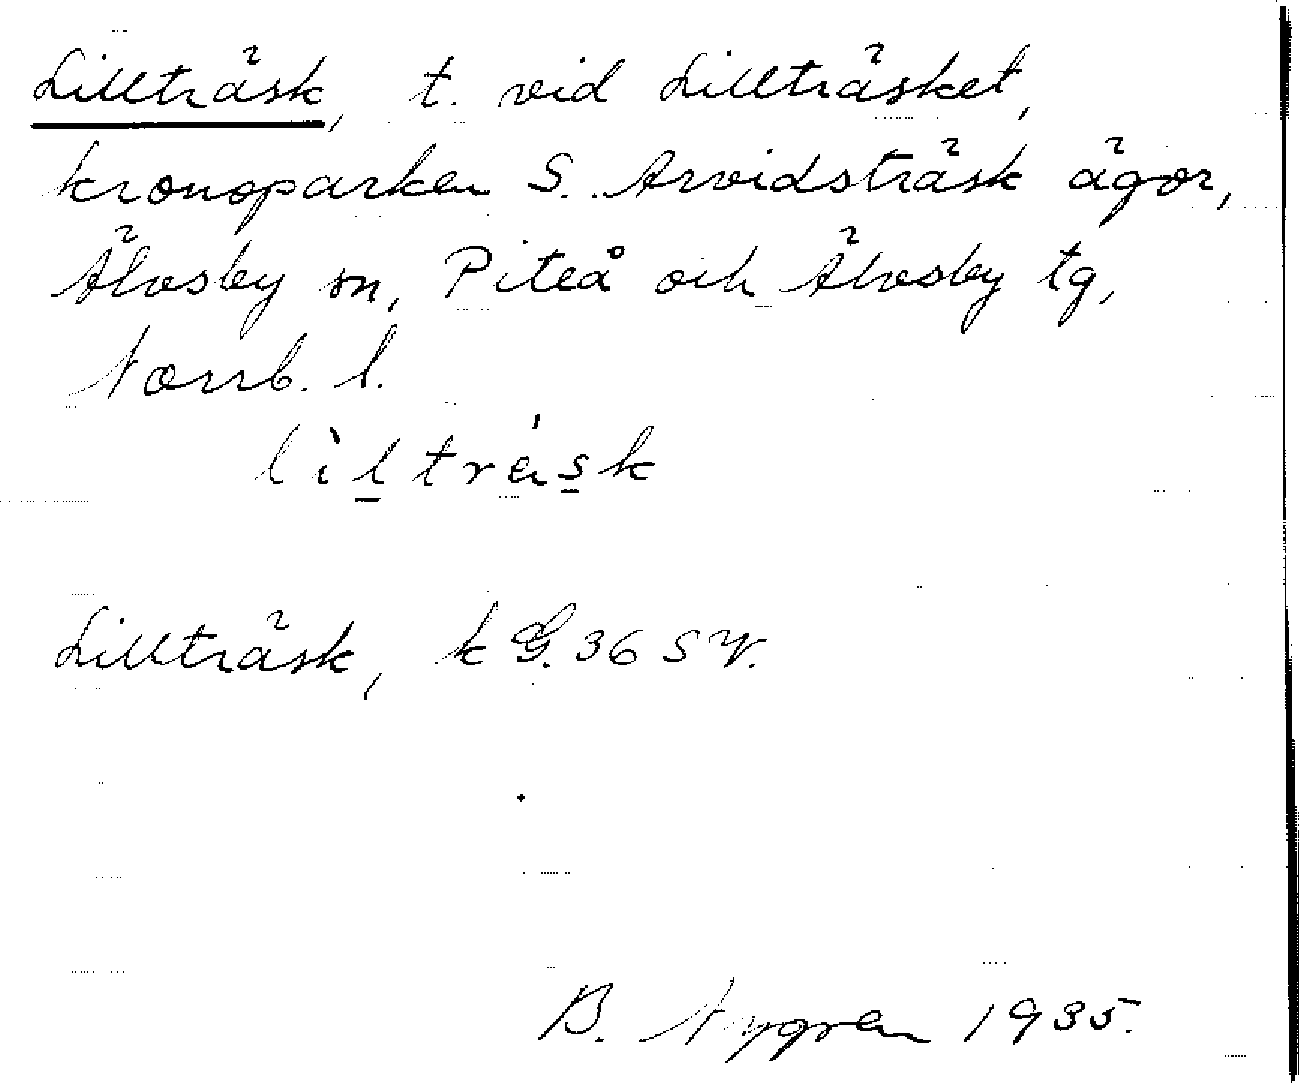 Lillträsk, t. vid Lillträsket,
kronoparken S. Arvidsträsk ägor,
Älvsby sn, Piteå och Älvsby tg,
Norrb. l.
lìlträ́sk
Lillträsk, k G. 36 SV.
B. Nygren 1935.